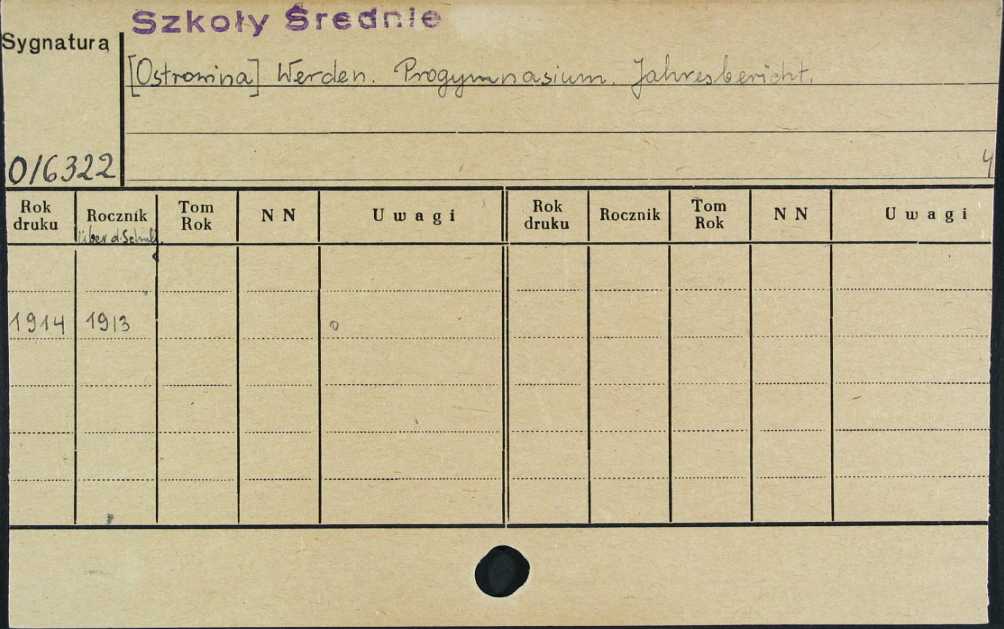 Szkoły Średnie
Sygnatura
[Ostrowina] Werden. Progymnasium. Jahresbericht.
0/6322
4
Rok druku Rocznik Tom Rok N N Uwagi Rok druku Rocznik Tom Rok N N Uwagi
über d. Schulj.
1914 1913 o